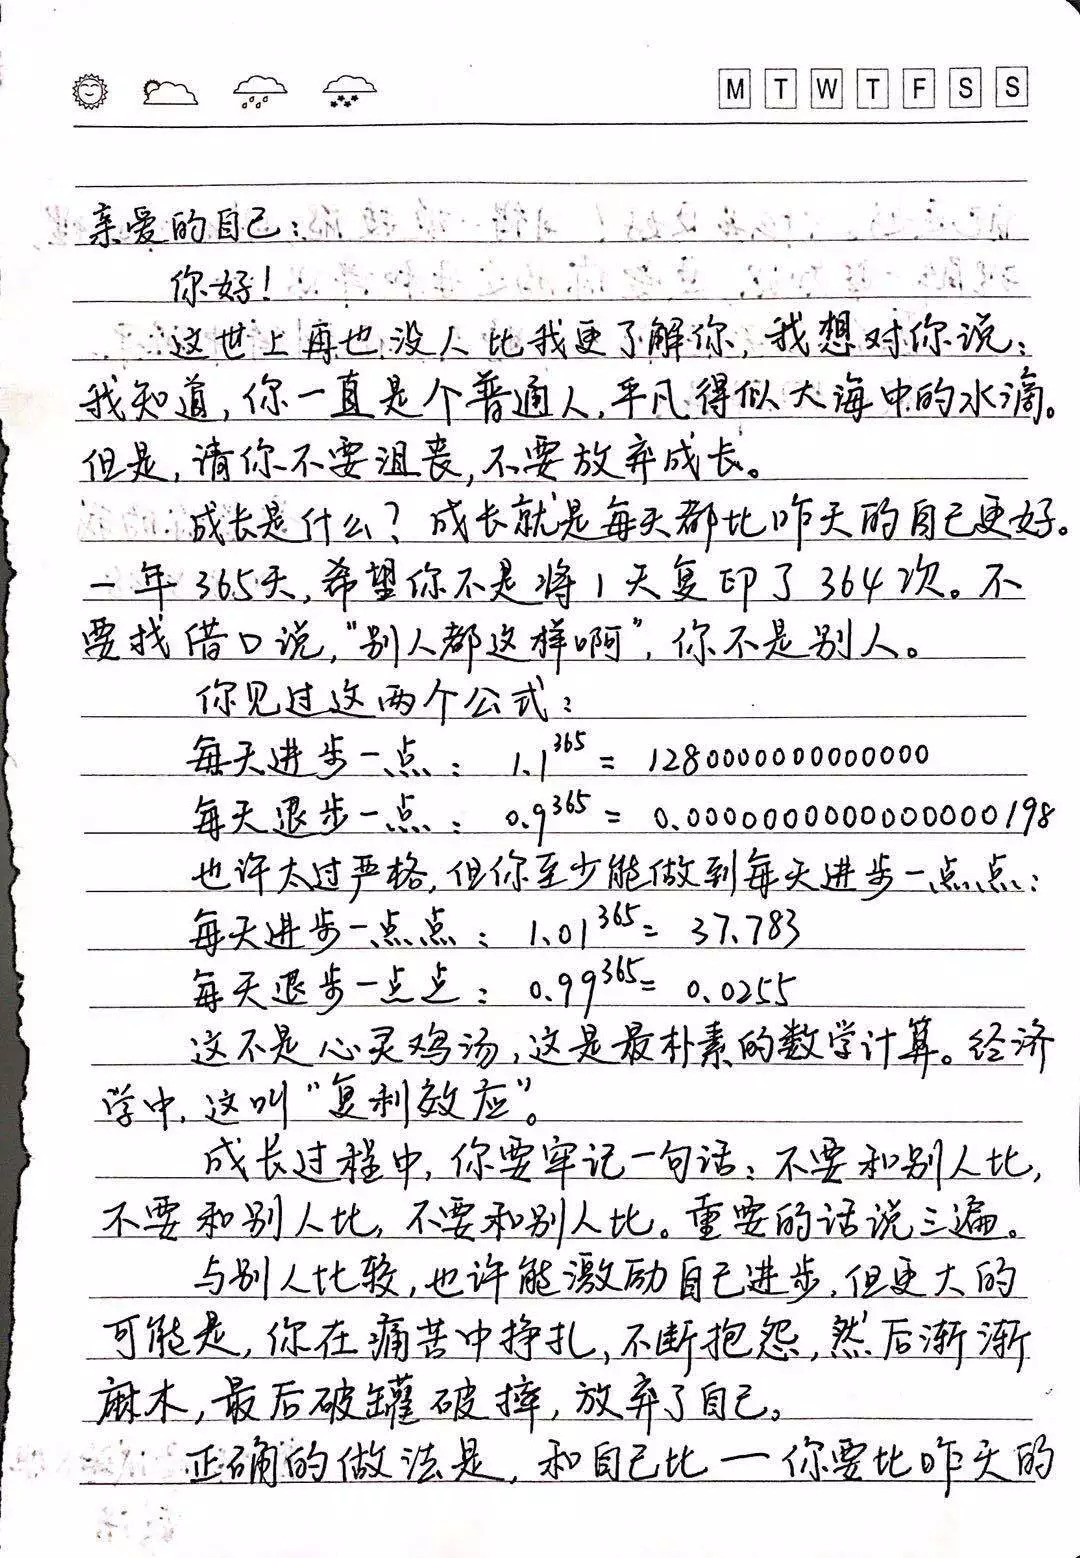 M T W T F S S
亲爱的自己：
你好！
这世上再也没人比我更了解你，我想对你说：
我知道，你一直是个普通人，平凡得似大海中的水滴。
但是，请你不要沮丧，不要放弃成长。
成长是什么？成长就是每天都比昨天的自己更好。
一年365天，希望你不是将1天复印了364次。不
要找借口说，"别人都这样啊"，你不是别人。
你见过这两个公式：
每天进步一点：1.1³⁶⁵ = 1280000000000000
每天退步一点：0.9³⁶⁵ = 0.0000000000000000198
也许太过严格，但你至少能做到每天进步一点点：
每天进步一点点：1.01³⁶⁵ = 37.783
每天退步一点点：0.99³⁶⁵ = 0.0255
这不是心灵鸡汤，这是最朴素的数学计算。经济
学中，这叫"复利效应"。
成长过程中，你要牢记一句话：不要和别人比，
不要和别人比，不要和别人比。重要的话说三遍。
与别人比较，也许能激励自己进步，但更大的
可能是，你在痛苦中挣扎，不断抱怨，然后渐渐
麻木，最后破罐破摔，放弃了自己。
正确的做法是，和自己比一你要比昨天的